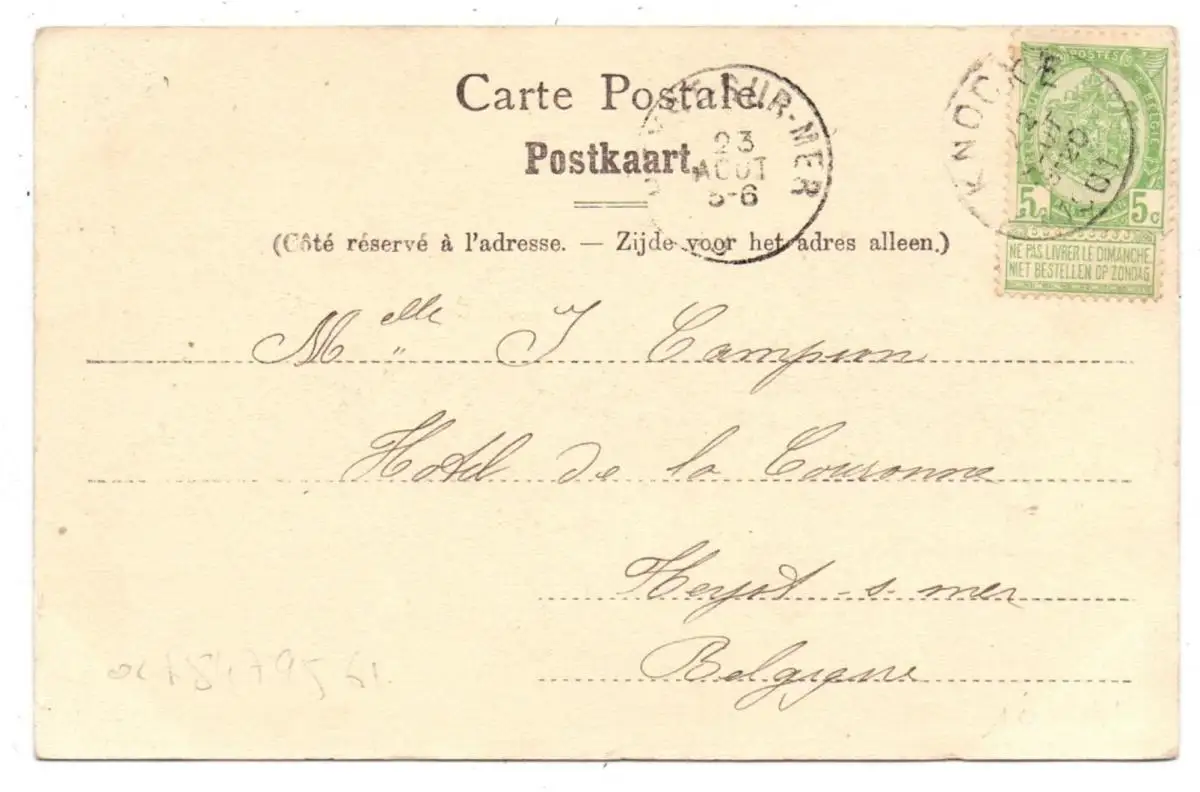 Carte Postale.
Postkaart.
(Côté réservé à l'adresse. — Zijde voor het adres alleen.)
SUR-MER
23
AOUT
5-6
KNOCKE
POSTES
5 5c
NE PAS LIVRER LE DIMANCHE
NIET BESTELLEN OP ZONDAG
Melle J Campion
Hotel de la Couronne
Heyst-s-mer
Belgique